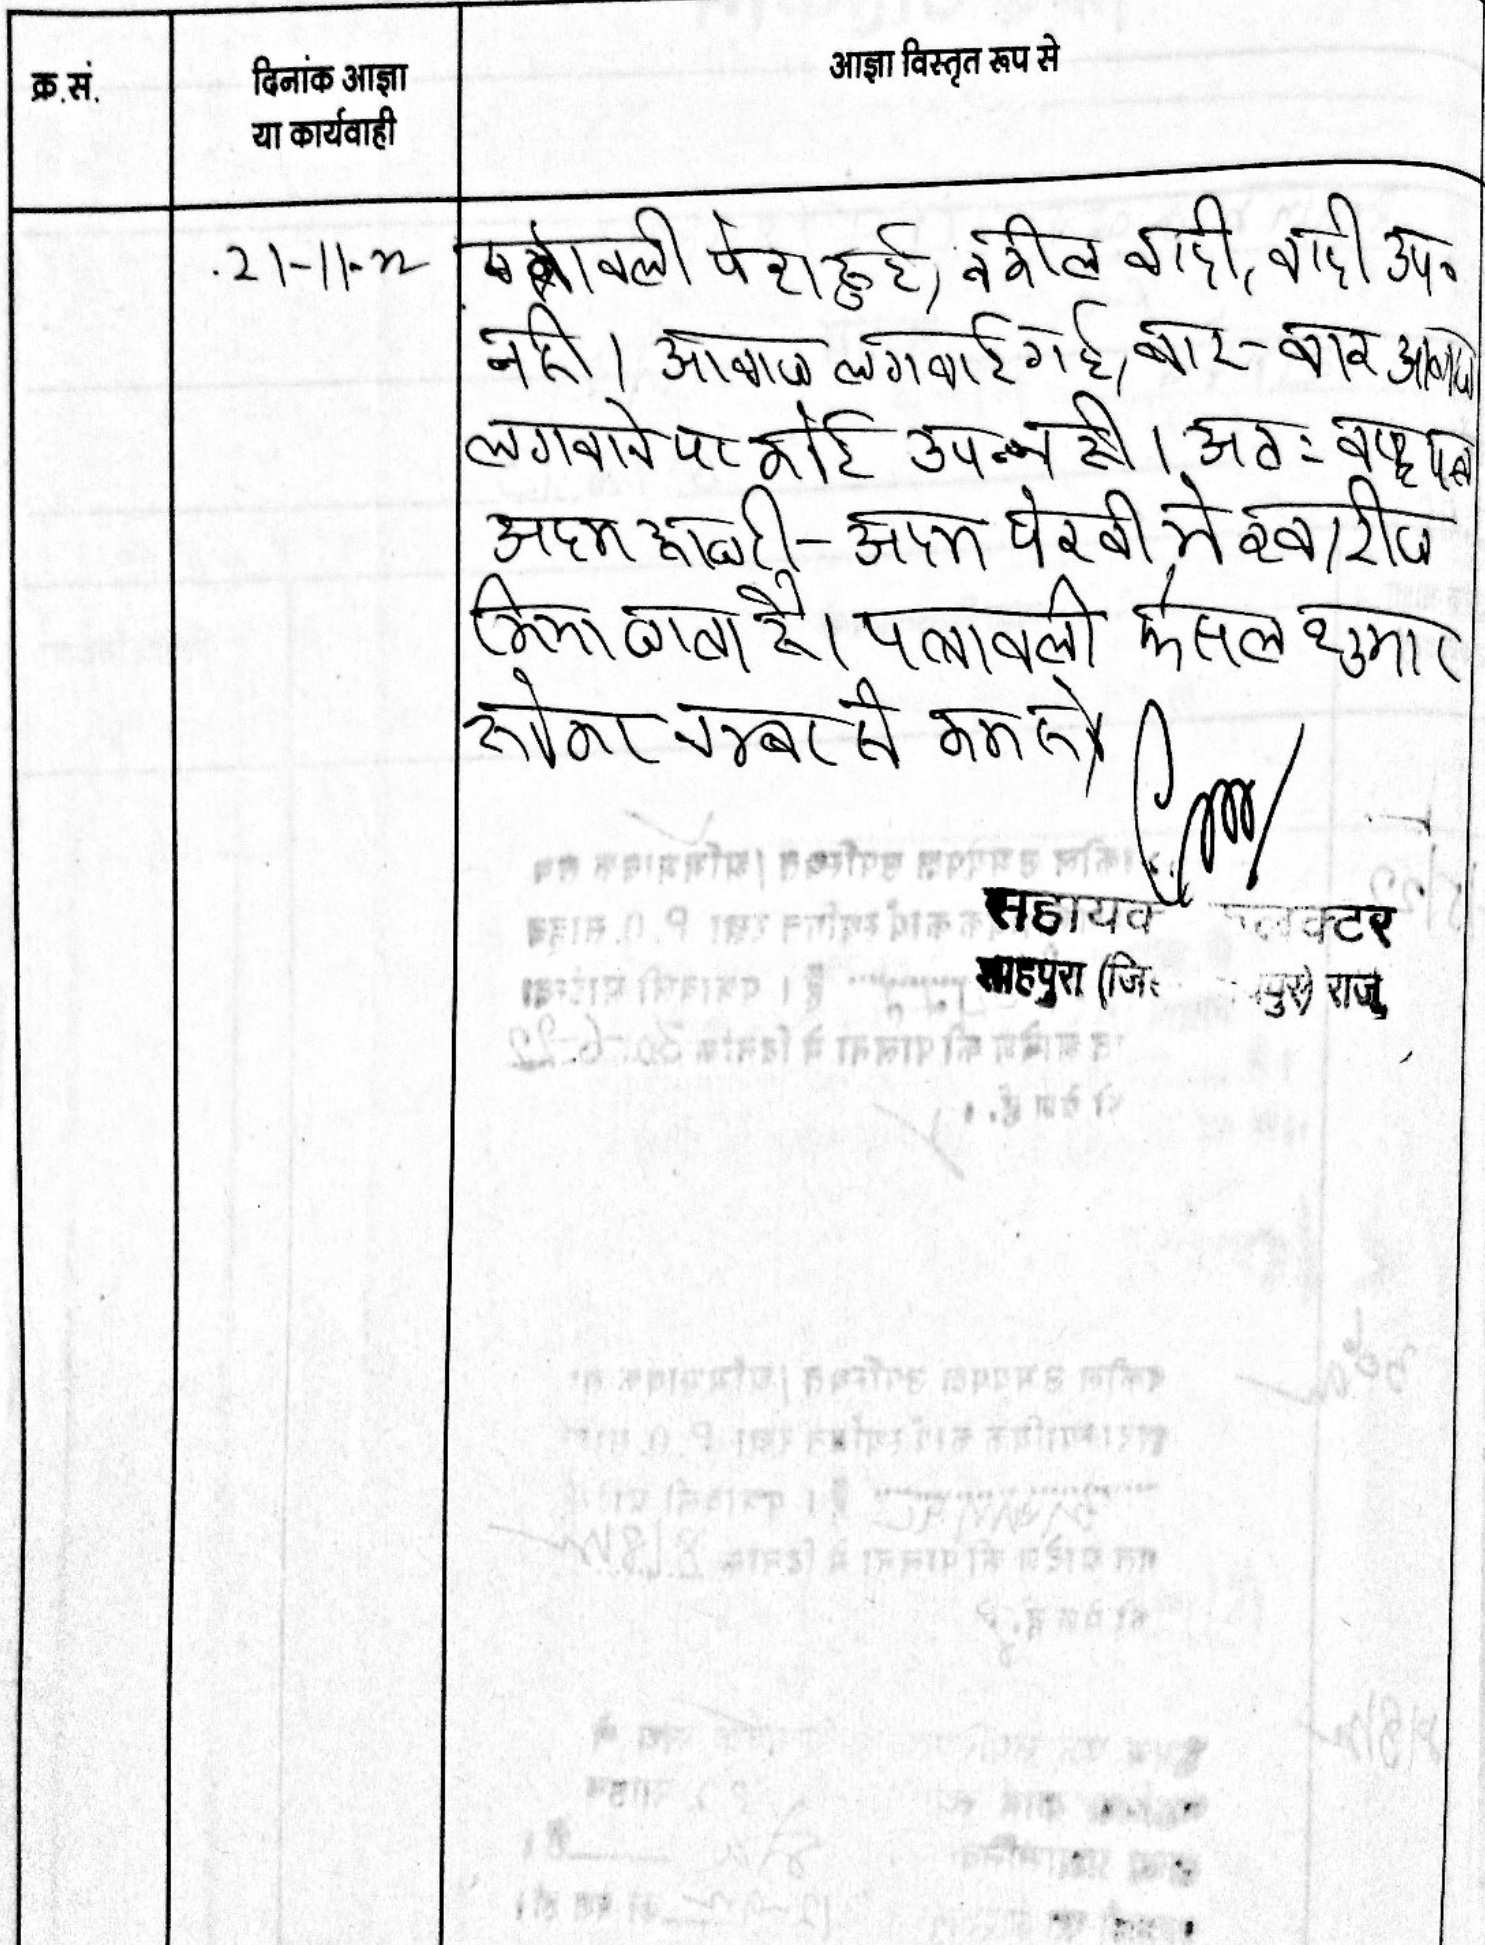 क्र.सं.
दिनांक आज्ञा
या कार्यवाही
आज्ञा विस्तृत रूप से
21-11-22
पत्रावली पेश हुई, वकील वादी, वादी उप०
नही। आवाज लगवाई गई, बार-बार आवाज
लगवाने पर कोई उप० नही। अतः वाद पत्र
अदम हाजरी - अदम पेरवी मे खारीज
किया जाता है। पत्रावली फैसल शुमार
होकर नम्बर से कम हो।
सहायक कलक्टर
शाहपुरा (जि. पुर) राज.